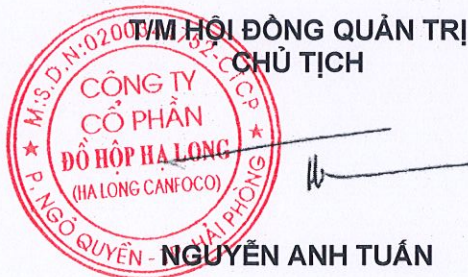 T/M HỘI ĐỒNG QUẢN TRỊ
CHỦ TỊCH
CÔNG TY
CỔ PHẦN
ĐỒ HỘP HẠ LONG
(HA LONG CANFOCO)
P. NGÔ QUYỀN - HẢI PHÒNG
NGUYỄN ANH TUẤN